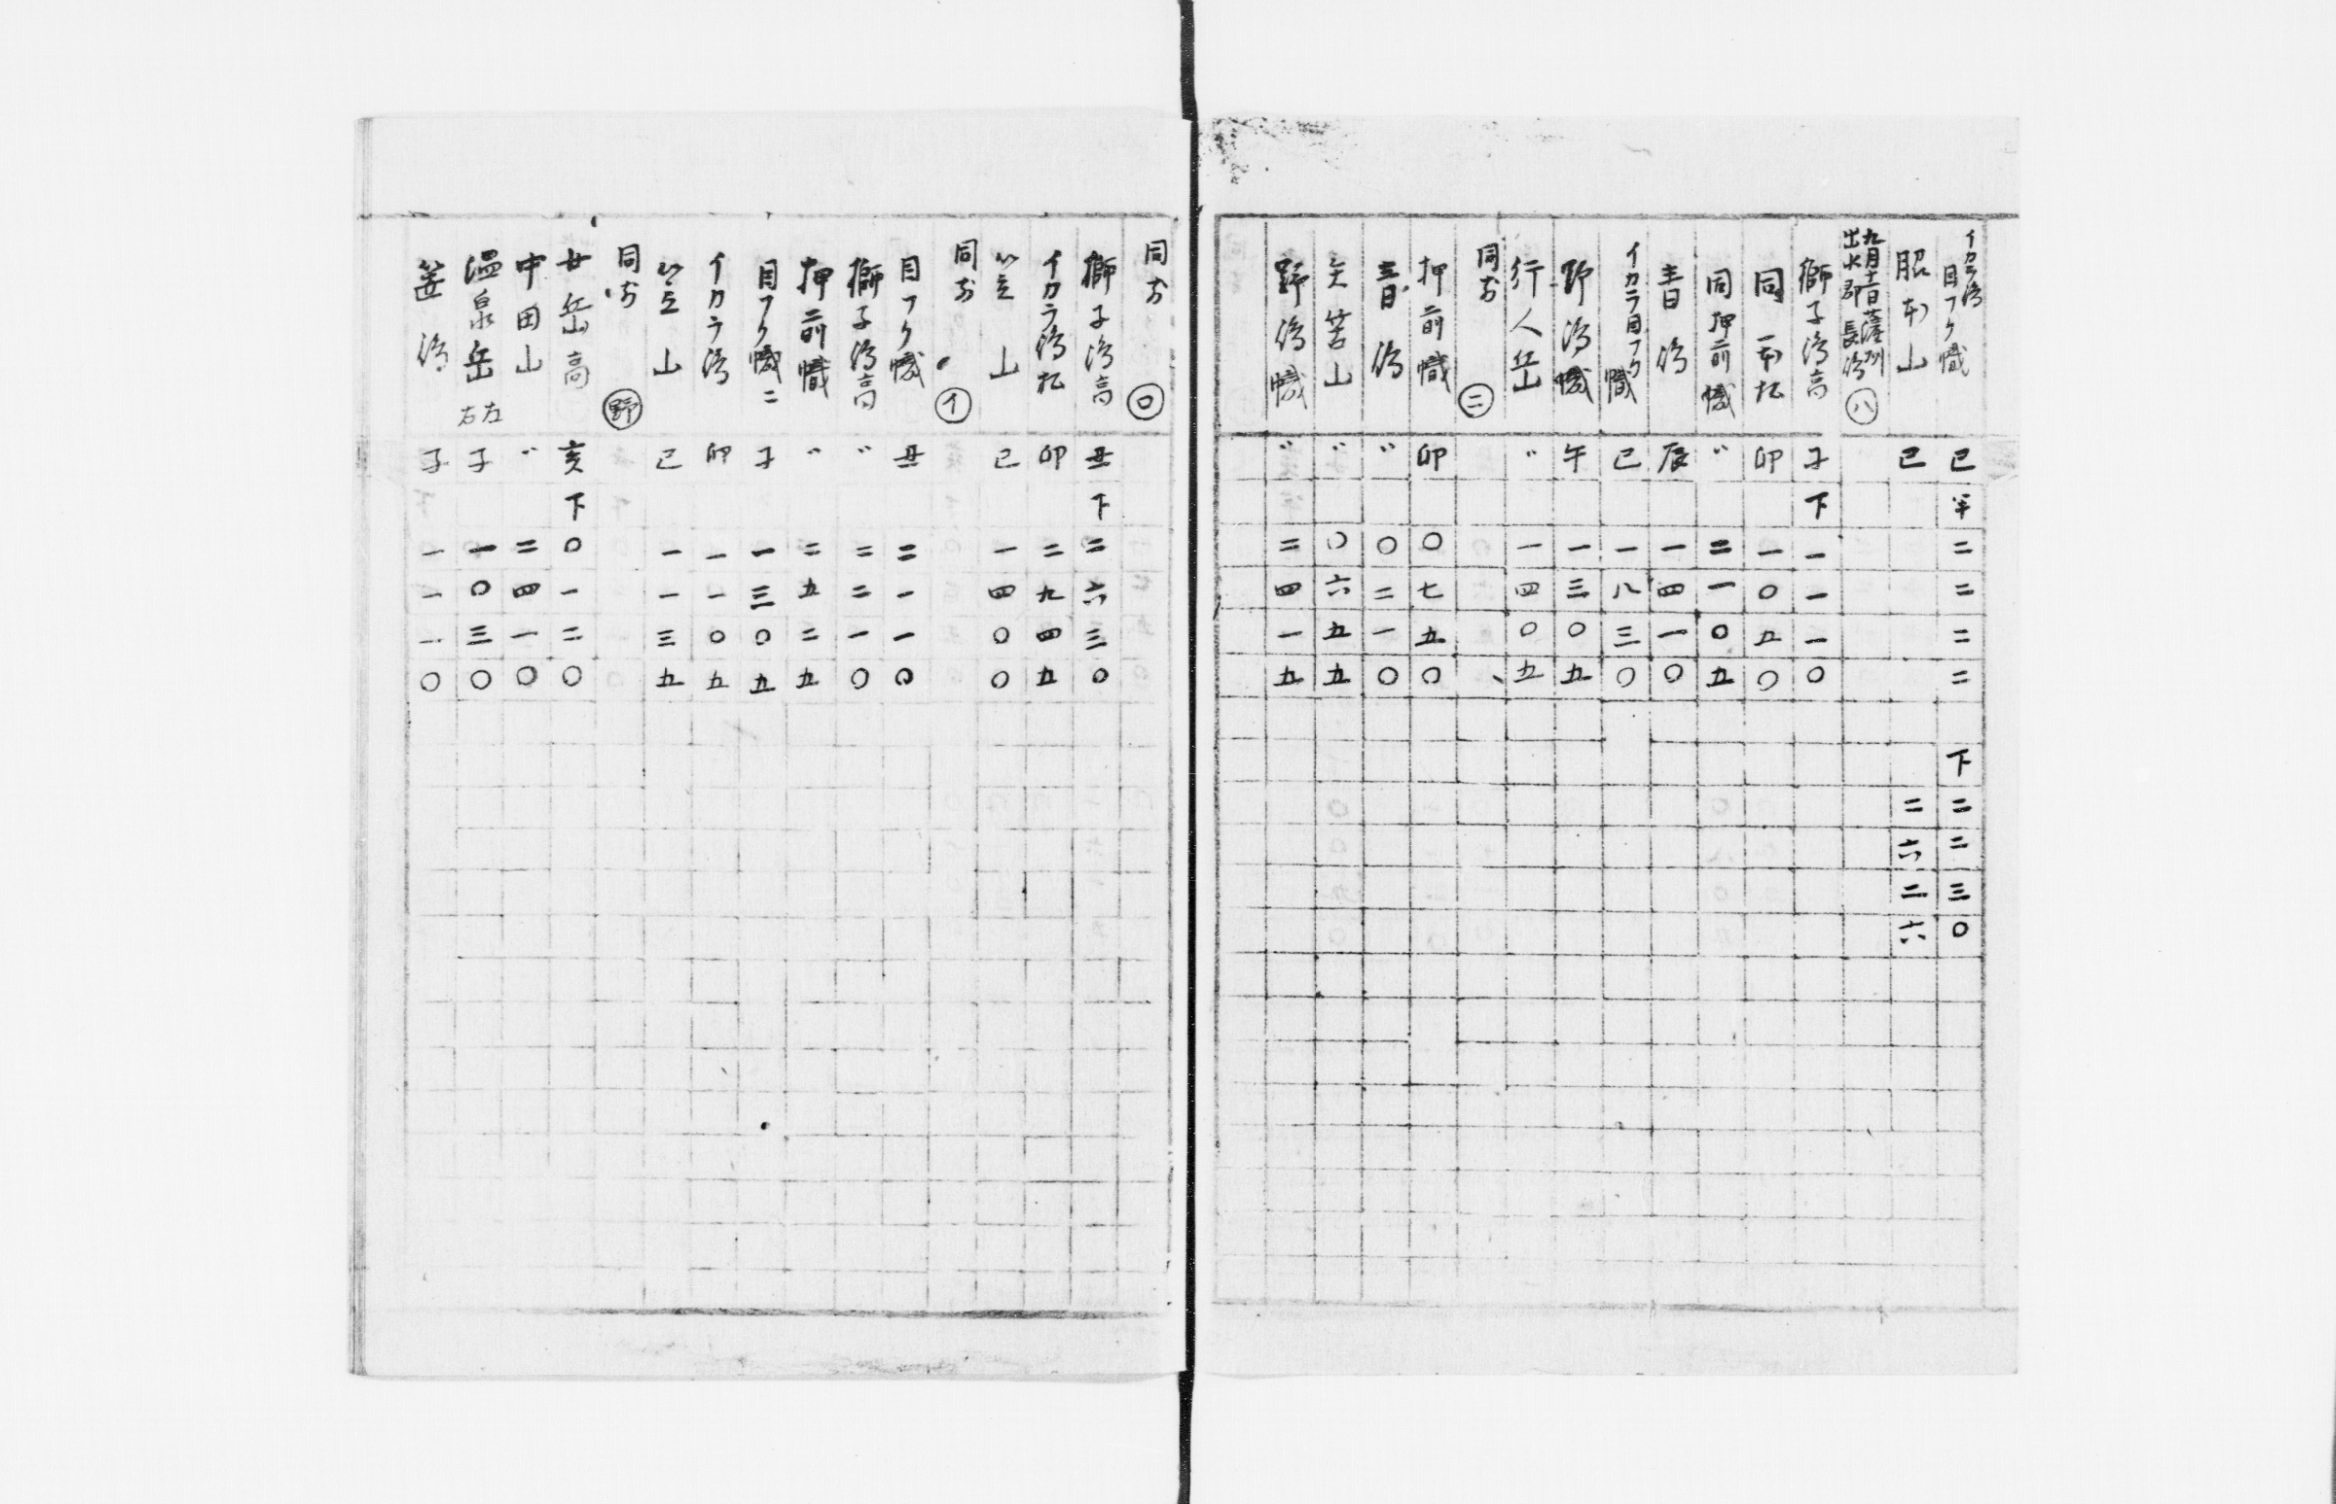 イカラ浮
目フク幟 巳半二二二二 下二二三〇
䏧 山 巳 二六二六
九月十一日薩州
出水郡 長浮 ハ
獅子浮高 子下一一一〇
同 一本松 卯一〇五〇
同押前幟 〃二一〇五
青浮 辰一四一〇
イカラ目フク幟 巳一八三〇
野浮幟 午一三〇五
行人岳 〃一四〇五
同所 ニ
押前幟 卯〇七五〇
青浮 〃〇二一〇
矢筈山 〃〇六五五
野浮幟 〃二四一五
同所 ロ
獅子浮高 丑下二六三〇
イカラ浮松 卯二九四五
笠山 巳一四〇〇
同所 イ
目フク幟 丑二一一〇
獅子浮高 〃二二一〇
押前幟 〃二五二五
目フク幟ニ 子一三〇五
イカラ浮 卯一一〇五
笠山 巳一一三五
同所 野
女岳高 亥下〇一二〇
中田山 〃二四一〇
温泉岳 左右 子一〇三〇
笠浮 子一一一〇